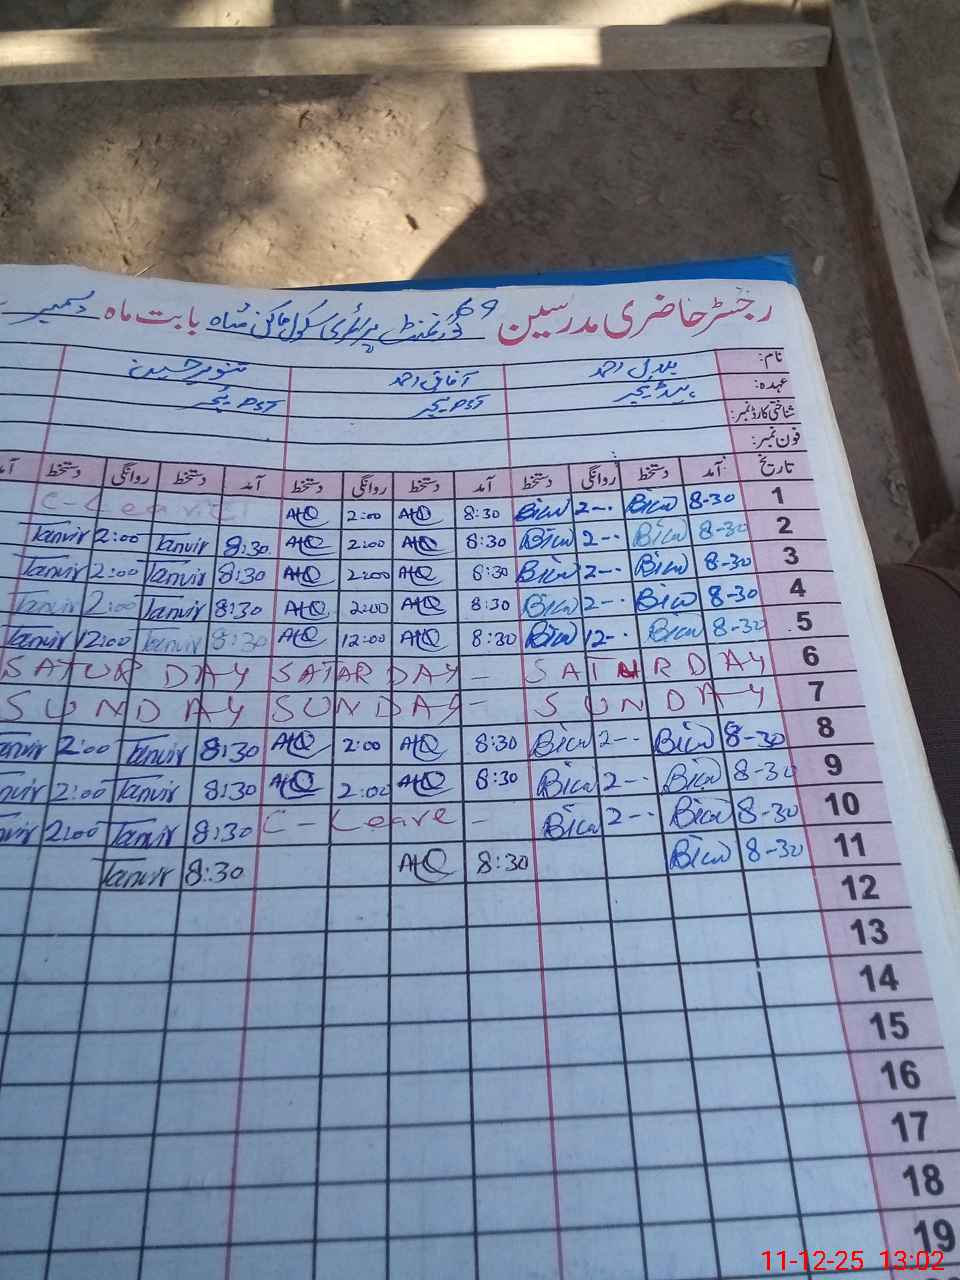 رجسٹر حاضری مدرسین گورنمنٹ پرائمری سکول شاہ بابت ماہ دسمبر
نام: بلال احمد آفاق احمد تنویر حسین
عہدہ: ہیڈ ٹیچر PST ٹیچر PST ٹیچر
شناختی کارڈ نمبر:
فون نمبر:
تاریخ آمد دستخط روانگی دستخط آمد دستخط روانگی دستخط آمد دستخط روانگی دستخط آمد
1 8-30 2-- 8:30 2:00 C-Leave
2 8-30 2-- 8:30 2:00 8:30 Tanvir 2:00 Tanvir
3 8-30 2-- 8:30 2:00 8:30 Tanvir 2:00 Tanvir
4 8-30 2-- 8:30 2:00 8:30 Tanvir 2:00 Tanvir
5 8-30 12-- 8:30 12:00 8:30 Tanvir 12:00 Tanvir
6 SATURDAY SATARDAY - SATURDAY
7 SUNDAY SUNDAY - SUNDAY
8 8-30 2-- 8:30 2:00 8:30 Tanvir 2:00 Tanvir
9 8-30 2-- 8:30 2:00 8:30 Tanvir 2:00 Tanvir
10 8-30 2-- C-Leave - 8:30 Tanvir 2:00 Tanvir
11 8-30 8:30 8:30 Tanvir
12
13
14
15
16
17
18
19
11-12-25 13:02